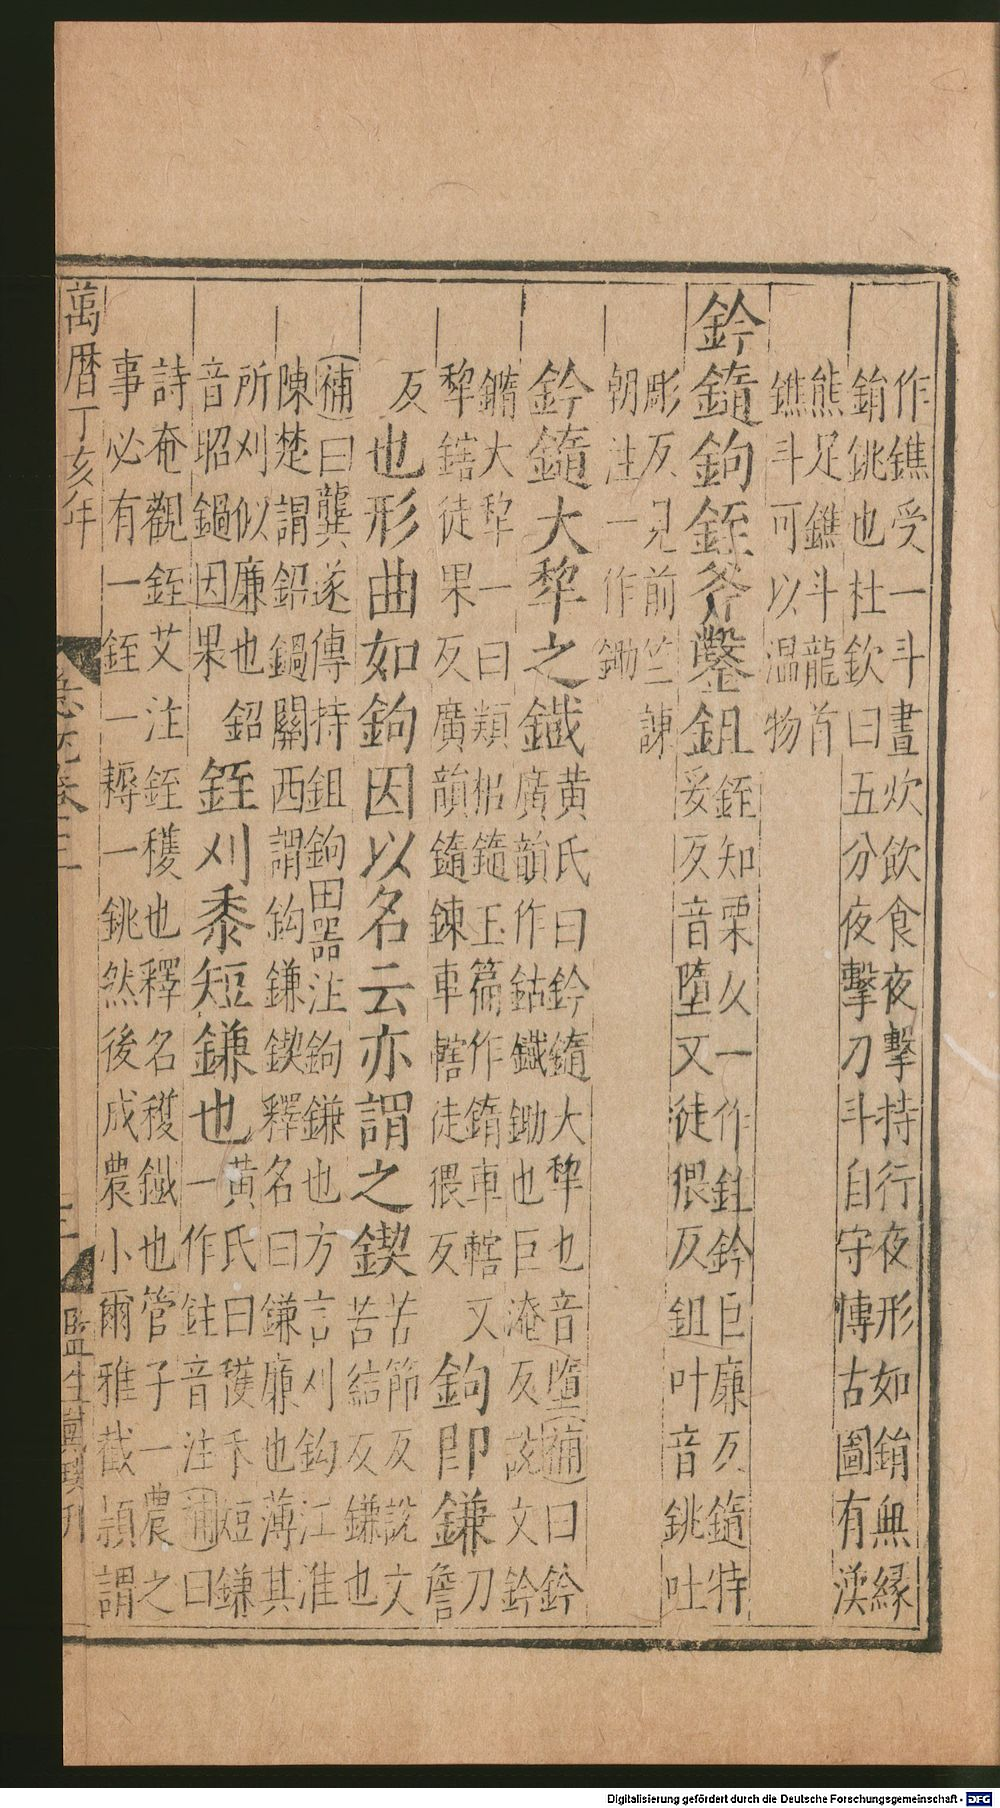 作鐎受一斗晝炊飲食夜擊持行夜形如銷無緣
銷銚也杜欽曰五分夜擊刀斗自守傳古圖有漢
熊足鐎斗龍首
鐎斗可以温物
鈐䥯鉤銍斧鑿鉏
銍知栗乆一作銈鈐巨廉反䥯特
妥反音墮又徒猥反鉏叶音銚吐
彫反見前竺諫
朝注一作鋤
鈐䥯大犂之鐵
黄氏曰鈐䥯大犂也音墮補曰鈐
廣韻作鈷鐵鋤也巨淹反說文鈐
䥯大犂一曰類枱䥯玉篇作䥯車轄又
犂鎋徒果反廣韻䥯鍊車轄徒猥反
鉤即鎌
刀
詹
反
也形曲如鉤因以名云亦謂之鍥
苦節反說文
苦結反鎌也
補曰龔遂傳持鉏鉤田器注鉤鎌也方言刈鉤江淮
陳楚謂鉊鍋關西謂鉤鎌鍥釋名曰鎌廉也薄其
所刈似廉也鉊
音昭鍋因果
銍刈黍短鎌也
黄氏曰穫禾短鎌
一作銈音注補曰
詩奄觀銍艾注銍穫也釋名穫鐵也管子一農之
事必有一銍一耨一銚然後成農小爾雅截頴謂
萬暦丁亥年
急就卷三
監生戴璞刋
Digitalisierung gefördert durch die Deutsche Forschungsgemeinschaft - DFG